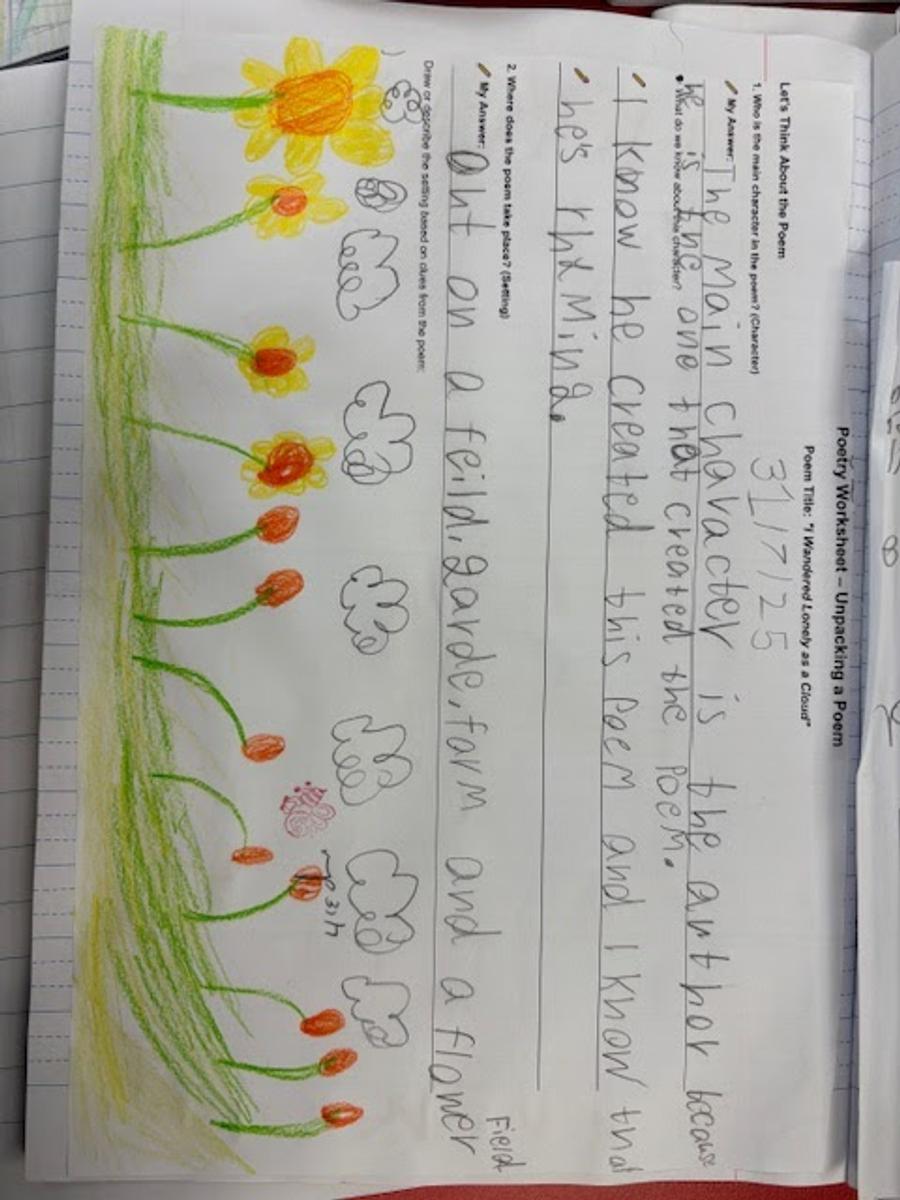 Poetry Worksheet – Unpacking a Poem
Poem Title: "I Wandered Lonely as a Cloud"
Let's Think About the Poem
31/7/25
1. Who is the main character in the poem? (Character)
My Answer: The main character is the author because
he is the one that created the poem.
What do we know about this character?
I know he created this poem and I know that
he's
2. Where does the poem take place? (Setting)
Field
My Answer: on a feild, garde, farm and a flower
Draw or describe the setting based on clues from the poem: